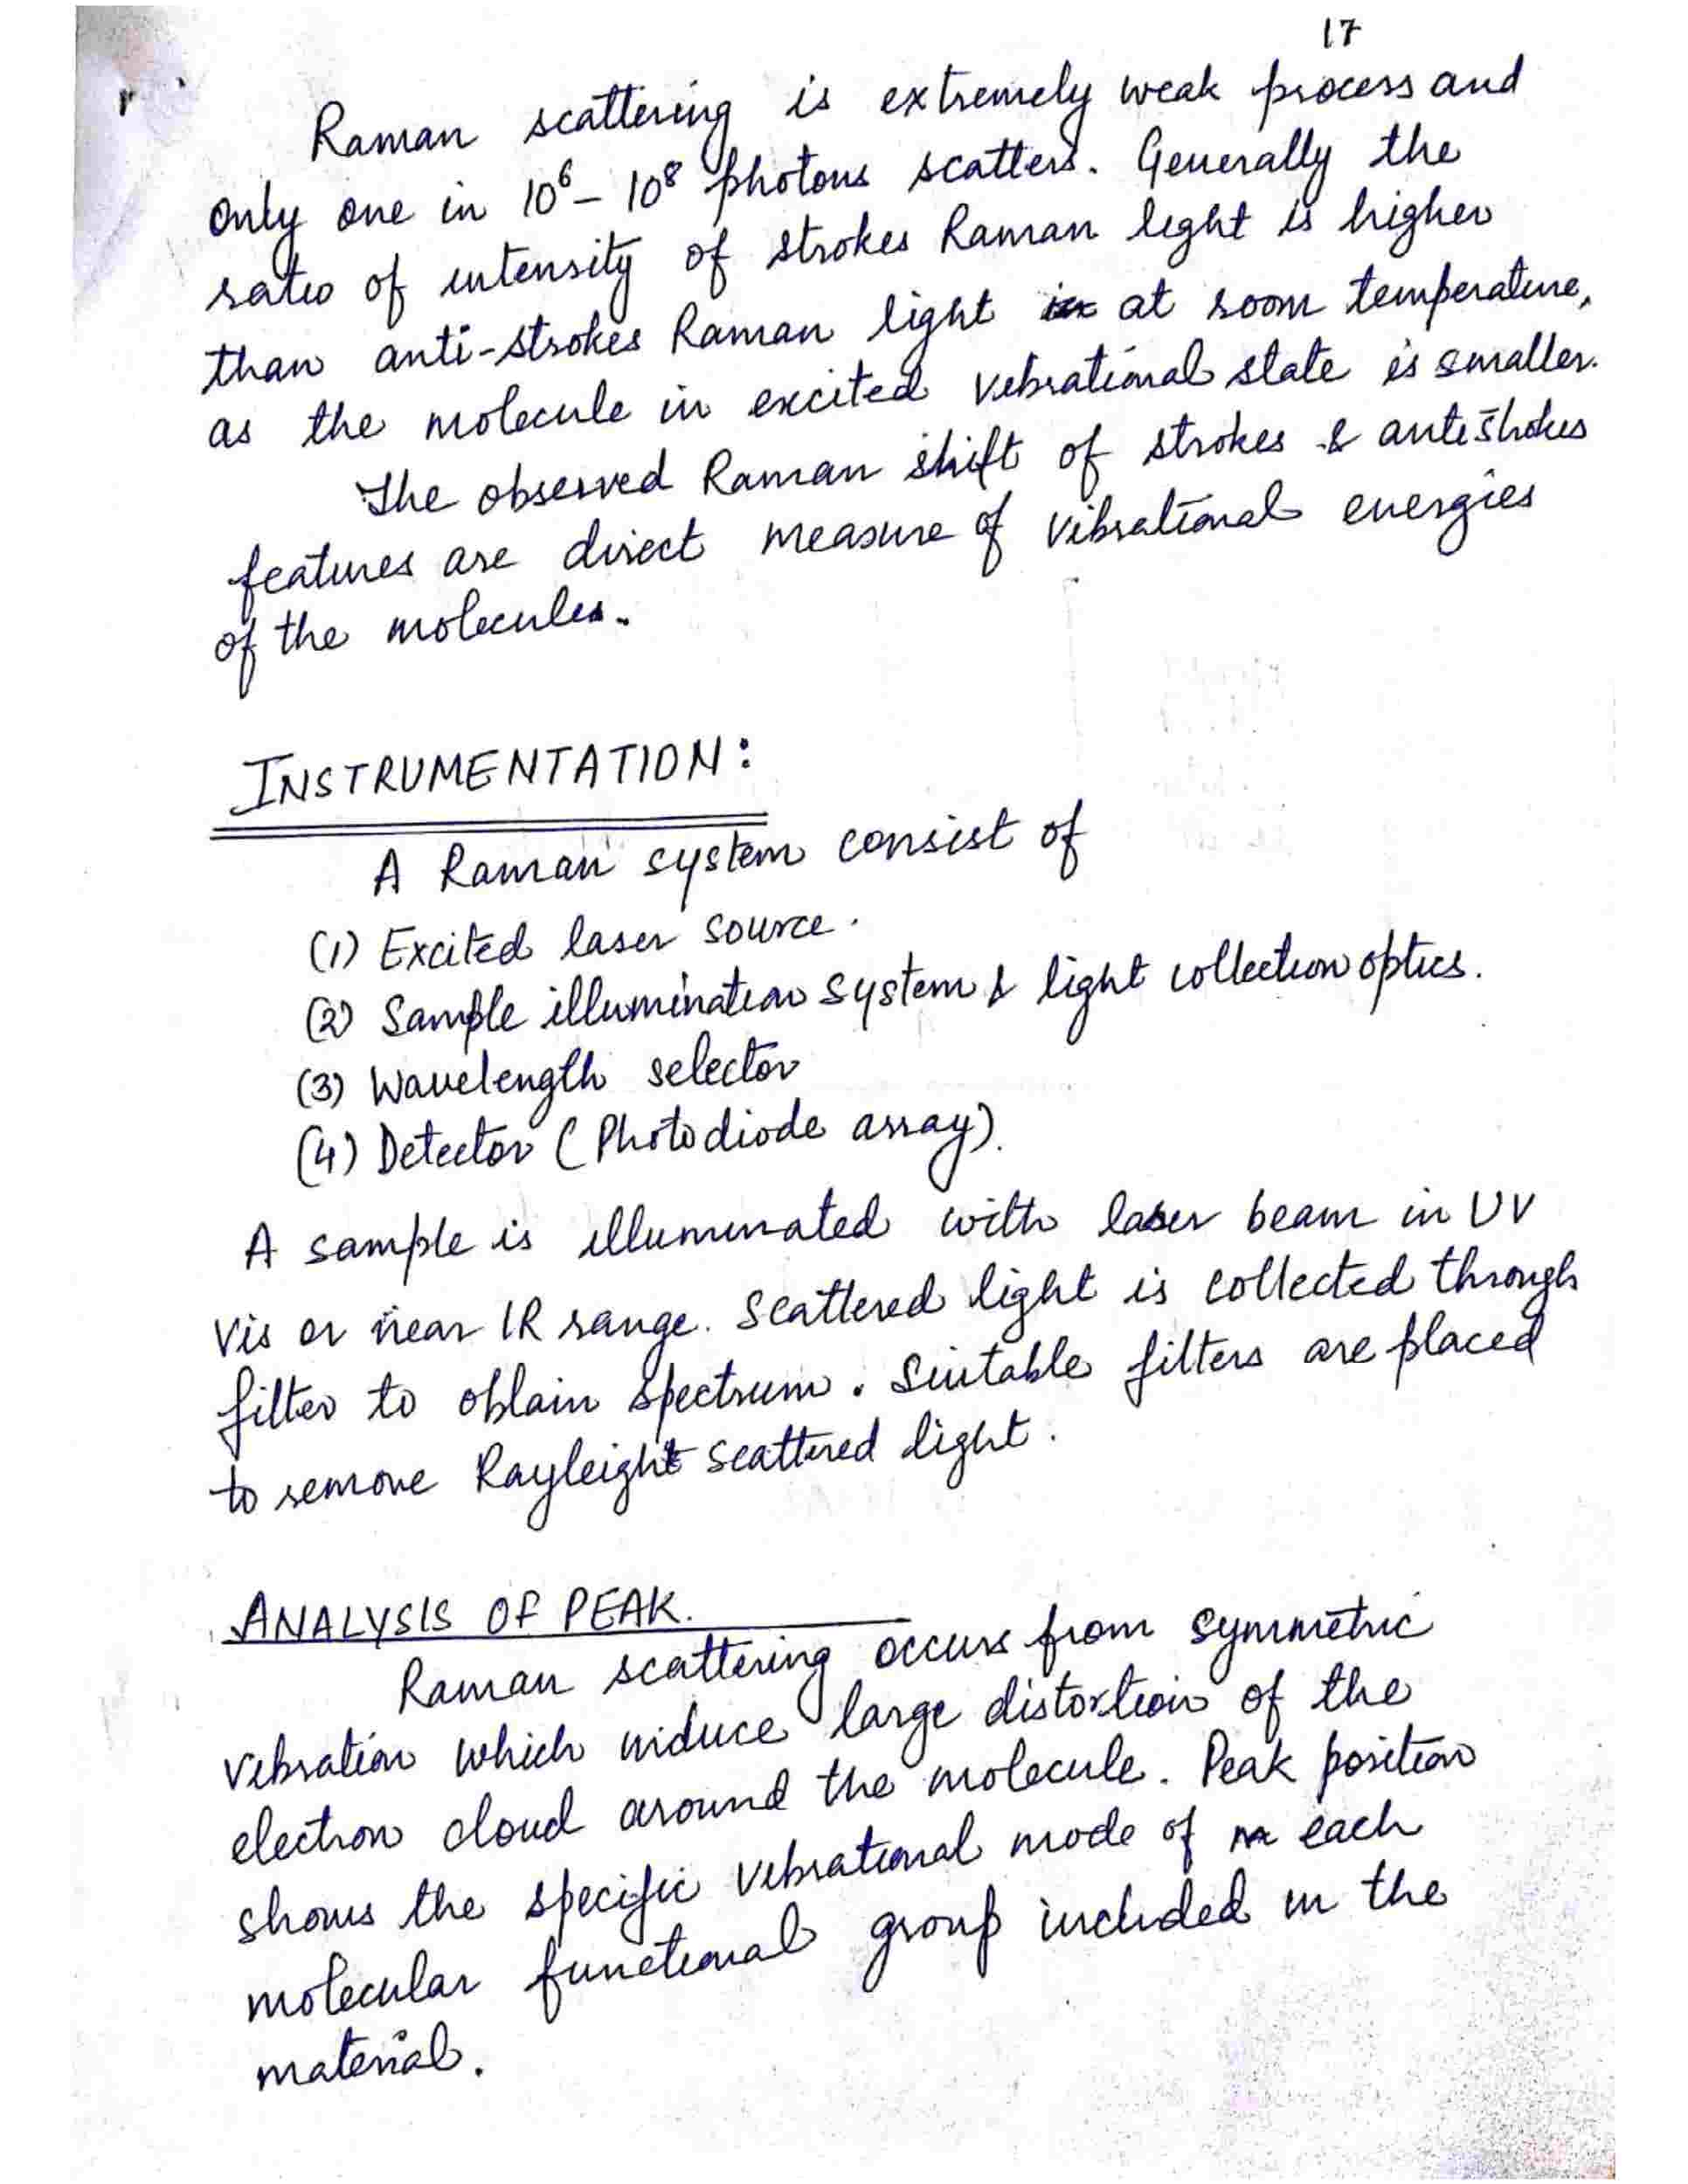 17
Raman scattering is extremely weak process and
only one in 10⁶ – 10⁸ photons scatters. Generally the
ratio of intensity of strokes Raman light is higher
than anti-strokes Raman light at room temperature,
as the molecule in excited vibrational state is smaller.
The observed Raman shift of strokes & antishokes
features are direct measure of vibrational energies
of the molecules.
INSTRUMENTATION:
A Raman system consist of
(1) Excited laser source.
(2) Sample illumination system & light collection optics.
(3) Wavelength selector
(4) Detector (Photodiode array).
A sample is illuminated with laser beam in UV
Vis or near IR range. Scattered light is collected through
filter to obtain spectrum. Suitable filters are placed
to remove Rayleigh scattered light.
ANALYSIS OF PEAK.
Raman scattering occurs from symmetric
vibration which induce large distortion of the
electron cloud around the molecule. Peak position
shows the specific vibrational mode of each
molecular functional group included in the
material.